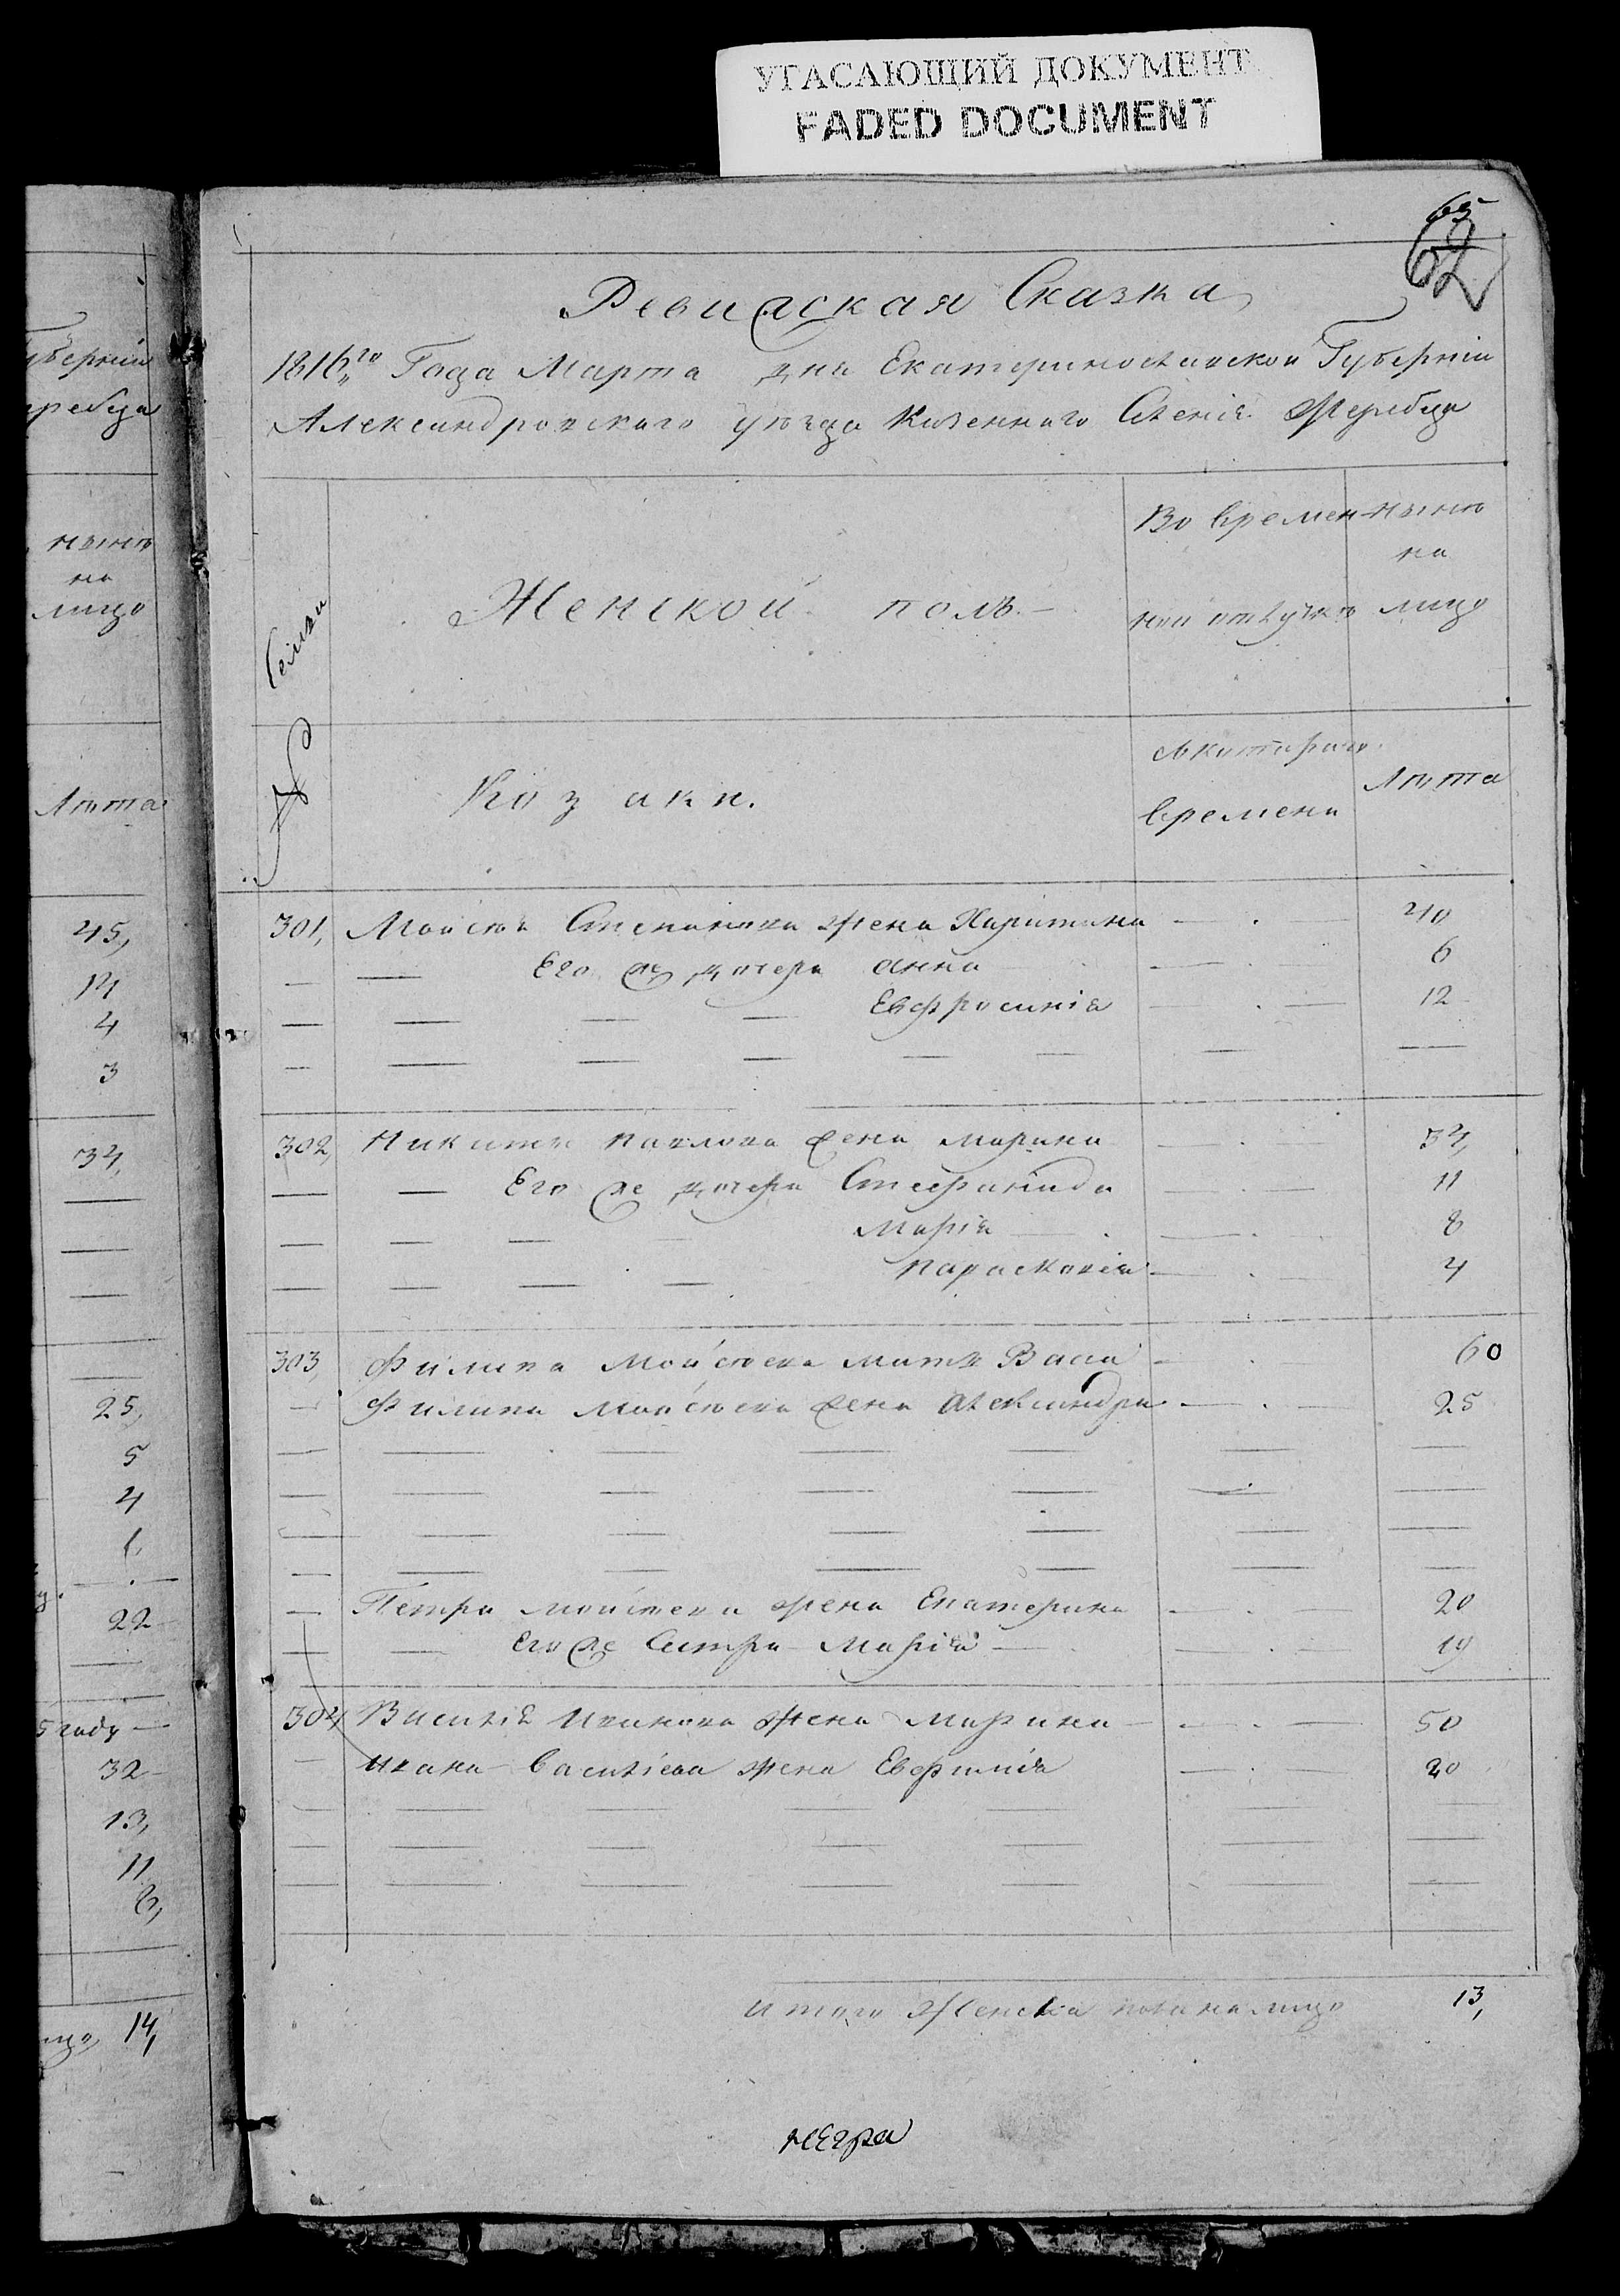 УГАСАЮЩИЙ ДОКУМЕНТ
FADED DOCUMENT
65
62
Ревизская Сказка
1816го Года Марта дня Екатеринославской Губерніи
Александровского уѣзда Казенного Селенія Жеребца
№ Семьи
Женской полъ
Во времен-
ной отлучкѣ
нынѣ
на
лицо
Козаки.
съ котораго
времени
Лѣта
301, Мойсѣя Степанова жена Харитина 40
Его же дочери Анна 6
Евфросинія 12
302, Никиты Павлова жена Марина 34,
Его же дочери Стефанида 11
Марія 8
Парасковія 4
303, Филипа Мойсѣева мать Васа 60
Филипа Мойсѣева жена Александра 25
Петра Мойсѣева жена Екатерина 20
Его же Сестра Марія 19
304 Василія Иванова жена Марина 50
Ивана Василіева жена Евфимія 20
Итого Женска пола на лицо 13,
губерніи
жеребца
нынѣ
на
лицо
Лѣта
45,
14
4
3
34,
25,
5
4
1.
22
5 году
32
13,
11
14,